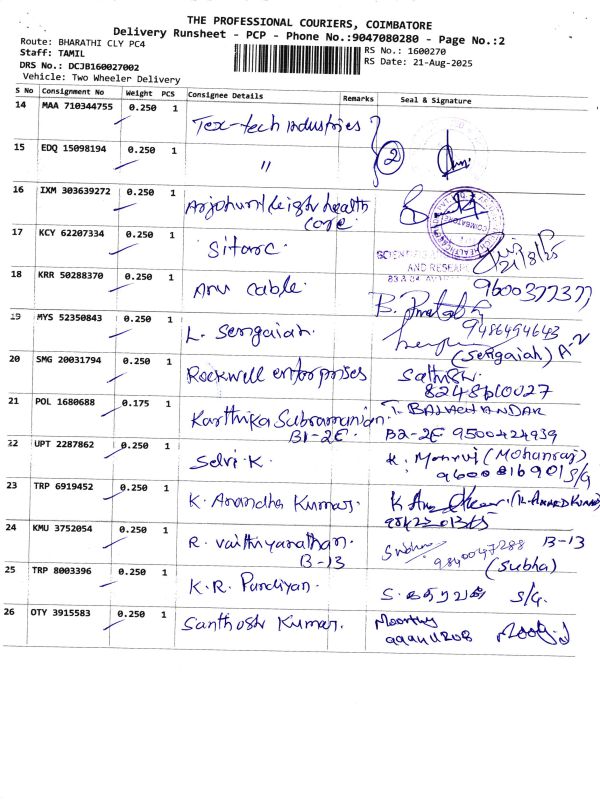 THE PROFESSIONAL COURIERS, COIMBATORE
Delivery Runsheet - PCP - Phone No.:9047080280 - Page No.:2
Route: BHARATHI CLY PC4
RS No.: 1600270
Staff: TAMIL
RS Date: 21-Aug-2025
DRS No.: DCJB160027002
Vehicle: Two Wheeler Delivery
S No Consignment No Weight PCS Consignee Details Remarks Seal & Signature
14 MAA 710344755 0.250 1 Tex-tech industries
2
15 EDQ 15098194 0.250 1 "
16 IXM 303639272 0.250 1 Arjohuntleigh health
care.
17 KCY 62207334 0.250 1 Sitarc. 21/8/25
SCIENTIFIC
AND RESEARCH
18 KRR 50288370 0.250 1 Anu cable. 9600377377
19 MYS 52350843 0.250 1 L. Sengaiah. 9486494643
(Sengaiah) A-2
20 SMG 20031794 0.250 1 Rockwell enterprises Sathish.
21 POL 1680688 0.175 1 Karthika Subramanian. T. BALACHANDAR
B1-2E. B2-2E 9500424939
22 UPT 2287862 0.250 1 Selvi.K. (Mohanraj)
S/G
23 TRP 6919452 0.250 1 K. Anandha Kumar.
24 KMU 3752054 0.250 1 R. Vaithiyanathan. Subha 9840047288 B-13
B-13 (Subha)
25 TRP 8003396 0.250 1 K.R. Pandiyan. S/G.
26 OTY 3915583 0.250 1 Santhosh Kumar. Moorthy